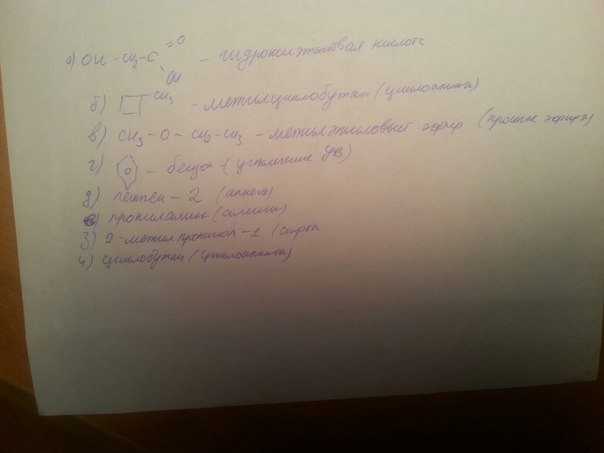 а) OH - CH2 - C =O OH - гидроксиэтановая кислота
б) CH3 - метилциклобутан (циклоалканы)
в) CH3 - O - CH2 - CH3 - метилэтиловый эфир (простые эфиры)
г) - бензол (ув)
д) пентен - 2 (алкены)
пропиламин (амины)
3) 2 - метилпропанол - 1 (спирты
4) циклобутан (циклоалканы)